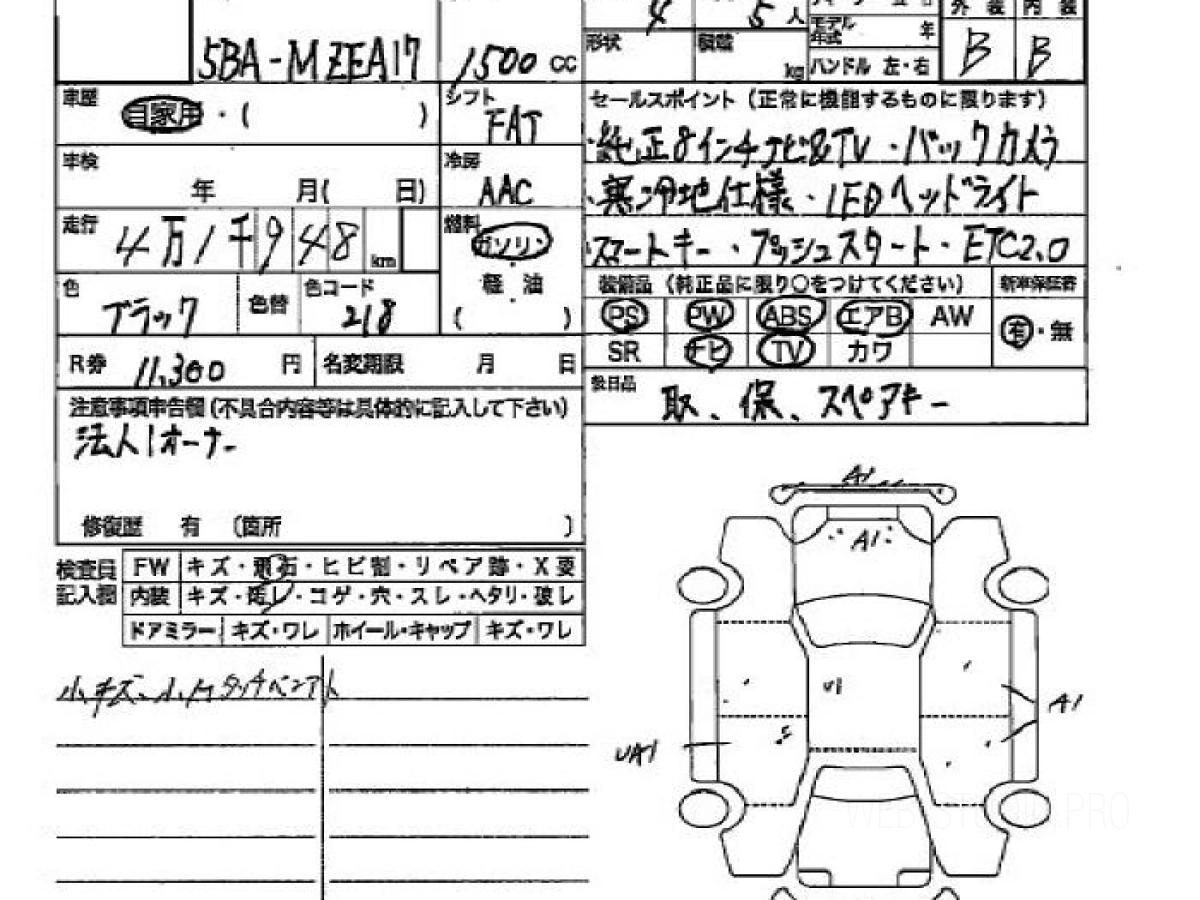 4 5人 外装 内装
モデル年式 年
5BA-MZEA17 1500 cc 形状 積載 kg ハンドル 左・右 B B
車歴 自家用・( ) シフト FAT セールスポイント（正常に機能するものに限ります）
・純正8インチナビ&TV・バックカメラ
車検 年 月( 日) 冷房 AAC ・寒冷地仕様・LEDヘッドライト
走行 4万1千948km 燃料 ガソリン ・スマートキー・プッシュスタート・ETC2.0
軽油 ( ) 装備品（純正品に限り○をつけてください） 新車保証書
色 ブラック 色替 色コード 218 PS PW ABS エアB AW 有・無
SR ナビ TV カワ
R券 11,300 円 名変期限 月 日
後日品 取、保、スペアキー
注意事項申告欄（不具合内容等は具体的に記入して下さい）
法人1オーナー
修復歴 有 〔箇所 〕
検査員記入欄 FW キズ・飛石・ヒビ割・リペア跡・X要
内装 キズ・汚レ・コゲ・穴・スレ・ヘタリ・破レ
ドアミラー キズ・ワレ ホイール・キャップ キズ・ワレ
小キズ、小凹 タッチペンアト
A1
A1
U1
A1
UA1